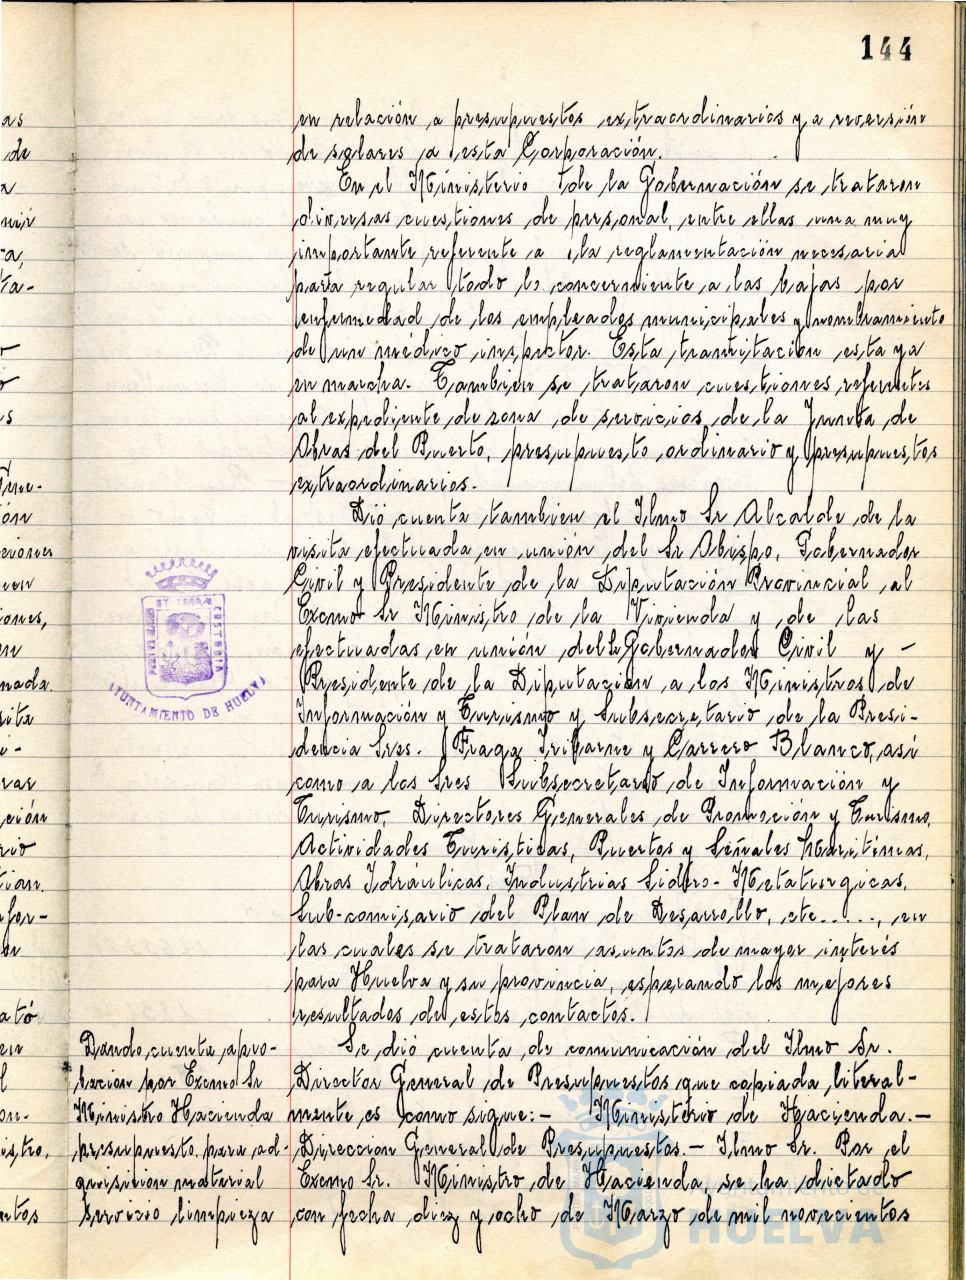 144
en relación a presupuestos extraordinarios y a reversión
de solares a esta Corporación.
En el Ministerio de la Gobernación se trataron
diversas cuestiones de personal, entre ellas una muy
importante referente a la reglamentación necesaria
para regular todo lo concerniente a las bajas por
enfermedad de los empleados municipales y nombramiento
de un médico inspector. Esta tramitación esta ya
en marcha. Tambien se trataron cuestiones referentes
al expediente de zona de servicios de la Junta de
Obras del Puerto, presupuesto ordinario y presupuestos
extraordinarios.
Dió cuenta tambien el Ilmo Sr Alcalde de la
visita efectuada en unión del Sr Obispo, Gobernador
Civil y Presidente de la Diputación Provincial, al
Excmo Sr Ministro de la Vivienda y de las
efectuadas en unión del Gobernador Civil y -
Presidente de la Diputación a los Ministros de
Información y Turismo y Subsecretario de la Presi-
dencia Sres. Fraga Iribarne y Carrero Blanco, así
como a los Sres Subsecretario de Información y
Turismo, Directores Generales de Promoción y Turismo,
Actividades Turisticas, Puertos y Señales Maritimas,
Obras Idráulicas, Industrias Sidero-Metalurgicas,
Sub-comisario del Plan de Desarrollo, etc....., en
las cuales se trataron asuntos de mayor interés
para Huelva y su provincia, esperando los mejores
resultados de estos contactos.
Se dió cuenta de comunicación del Ilmo Sr.
Director General de Presupuestos que copiada literal-
mente es como sigue:- Ministerio de Hacienda.-
Direccion General de Presupuestos.- Ilmo Sr. Por el
Excmo Sr. Ministro de Hacienda, se ha dictado
con fecha diez y ocho de Marzo de mil novecientos
Dando cuenta apro-
bacion por Excmo Sr
Ministro Hacienda
presupuesto para ad-
quisicion material
Servicio limpieza
AYUNTAMIENTO DE HUELVA
Ayuntamiento de
HUELVA